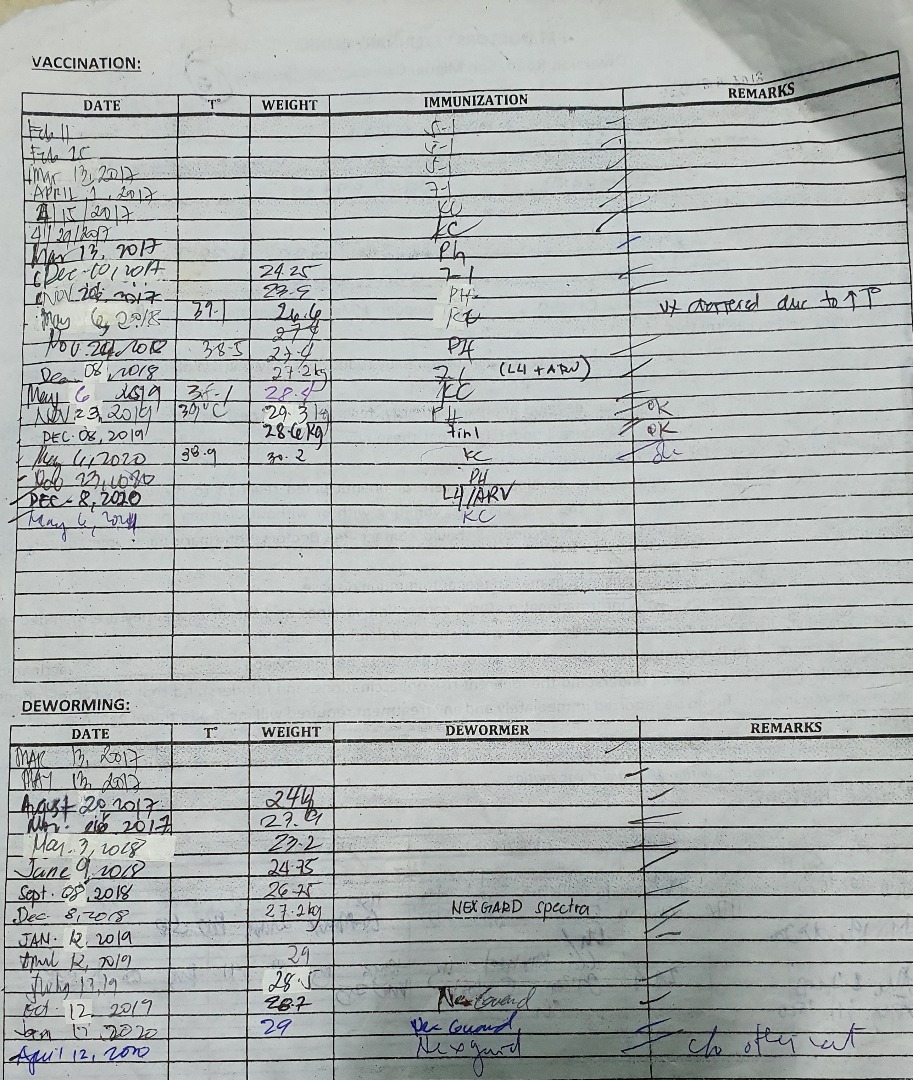 VACCINATION:
DATE T° WEIGHT IMMUNIZATION REMARKS
Feb 11 5-1
Feb 25 5-1
Mar 13, 2017 5-1
APRIL 1, 2017 7-1
4/15/2017 KC
4/29/2017 KC
Mar 13, 2017 Ph
Dec 10, 2017 24.25 7-1
Nov. 26, 2017 23.9 PH
May 6, 2018 39.1 26.6 KC due to ↑T°
27.8
Nov. 24, 2018 38.5 27.4 PH
Dec 08, 2018 27.2kg 7-1 (L4 + ARV)
May 6 2019 28.4 KC
NOV. 23, 2019 39°C 29.3 kg PH OK
DEC. 08, 2019 28.6 kg 7in1 OK
May 6, 2020 38.9 30.2 KC
PH
DEC - 8, 2020 L4/ARV
May 6, KC
DEWORMING:
DATE T° WEIGHT DEWORMER REMARKS
MAR 13, 2017
MAY 13, 2017
August 20, 2017 24kg
2017 27.9
Mar. 3, 2018 23.2
June 9, 2018 24.75
Sept. 08, 2018 26.75
Dec 8, 2018 27.2kg NEXGARD spectra
JAN. 12, 2019
April 12, 2019 29
28.5
Oct. 12 2019 28.7 NexGuard
2020 29 Guard
April 12, 2020 Nexgard c/o other vet